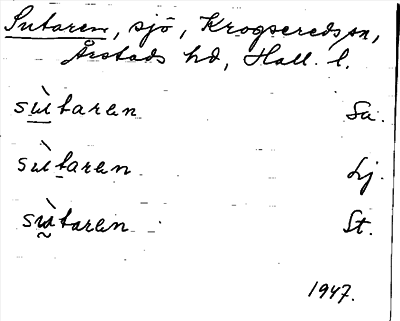 Sutaren, sjö, Krogsereds sn,
Årstads hd, Hall. l.
sùtaren Sa.
sùtaren Lj.
sùtaren St.
1947.